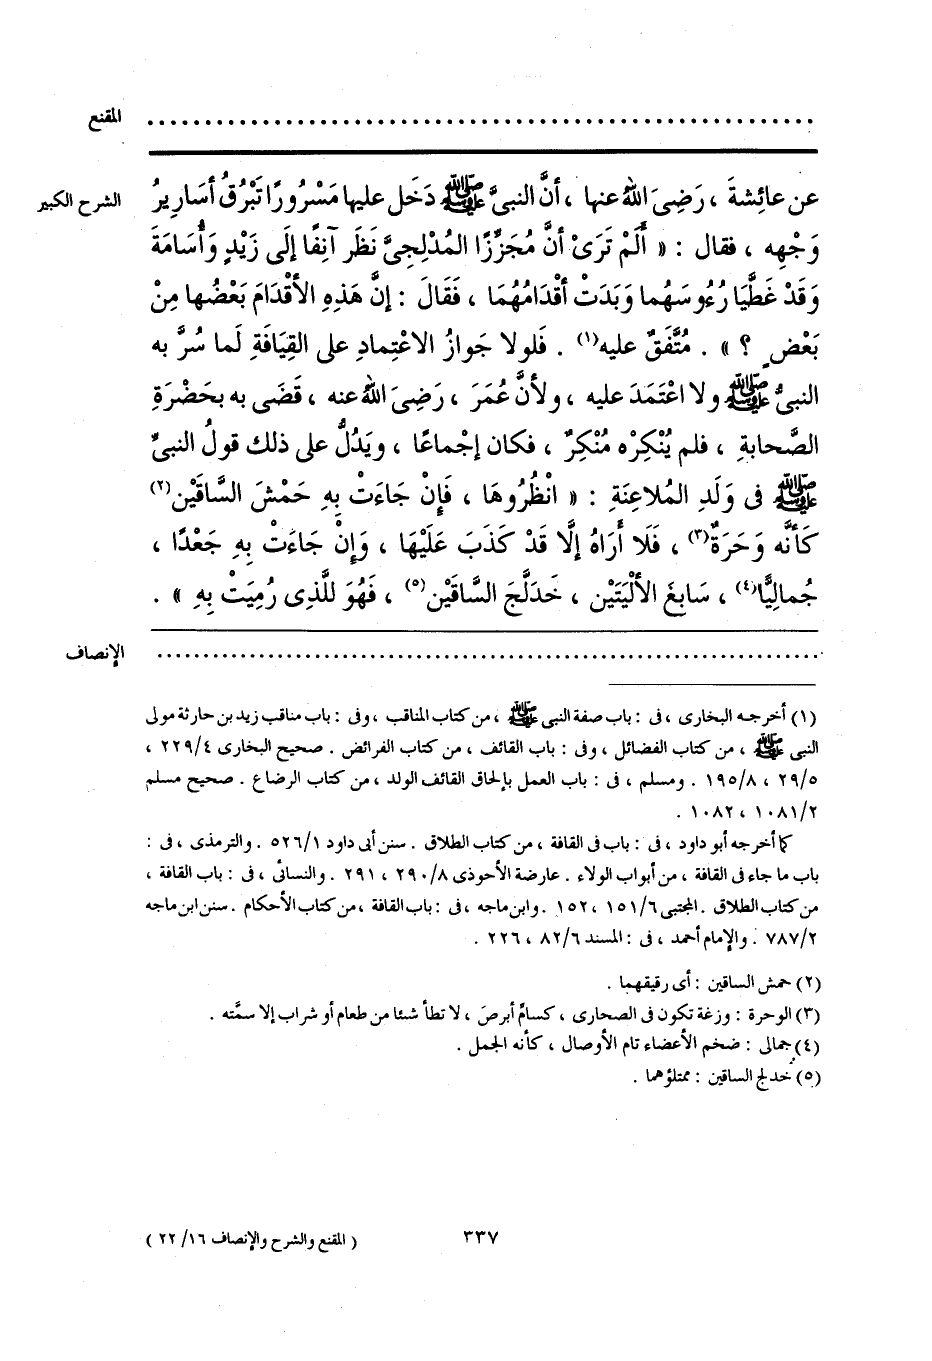 المقنع ............................................................
الشرح الكبير
عن عائِشةَ ، رَضِىَ اللهُ عنها ، أنَّ النبىَّ ﷺ دَخَل عليها مَسْرُورًا تَبْرُقُ أسَارِيرُ
وَجْهِه ، فقال : « أَلَمْ تَرَىْ أنَّ مُجَزِّزًا المُدْلِجِىَّ نَظَر آنِفًا إلَى زَيْدٍ وَأُسَامَةَ
وَقَدْ غَطَّيَا رُءُوسَهُما وَبَدَتْ أقْدَامُهُمَا ، فَقَالَ : إنَّ هَذِهِ الأقْدَامَ بَعْضُها مِنْ
بَعْضٍ ؟ » . مُتَّفَقٌ عليه(١) . فَلولا جَوازُ الاعْتِمادِ على القِيَافَةِ لَما سُرَّ به
النبىُّ ﷺ ولا اعْتَمَدَ عليه ، ولأنَّ عُمَرَ ، رَضِىَ اللهُ عنه ، قَضَى به بحَضْرَةِ
الصَّحابةِ ، فلم يُنْكِرْه مُنْكِرٌ ، فكان إجْماعًا ، ويَدُلُّ على ذلك قولُ النبىِّ
ﷺ فى وَلَدِ المُلاعِنَةِ : « انْظُرُوهَا ، فَإِنْ جَاءَتْ بِهِ حَمْشَ السَّاقَيْنِ(٢)
كَأنَّه وَحَرَةٌ(٣) ، فَلَا أَرَاهُ إلَّا قَدْ كَذَبَ عَلَيْهَا ، وَإِنْ جَاءَتْ بِهِ جَعْدًا ،
جُمالِيًّا(٤) ، سَابِغَ الألْيَتَيْنِ ، خَدَلَّجَ السَّاقَيْنِ(٥) ، فَهُوَ لِلَّذِى رُمِيَتْ بِهِ » .
الإنصاف ............................................................
(١) أخرجه البخارى ، فى : باب صفة النبى ﷺ ، من كتاب المناقب ، وفى : باب مناقب زيد بن حارثة مولى
النبى ﷺ ، من كتاب الفضائل ، وفى : باب القائف ، من كتاب الفرائض . صحيح البخارى ٢٢٩/٤ ،
٢٩/٥ ، ١٩٥/٨ . ومسلم ، فى : باب العمل بإلحاق القائف الولد ، من كتاب الرضاع . صحيح مسلم
١٠٨١/٢ ، ١٠٨٢ .
كما أخرجه أبو داود ، فى : باب فى القافة ، من كتاب الطلاق . سنن أبى داود ٥٢٦/١ . والترمذى ، فى :
باب ما جاء فى القافة ، من أبواب الولاء . عارضة الأحوذى ٢٩٠/٨ ، ٢٩١ . والنسائى ، فى : باب القافة ،
من كتاب الطلاق . المجتبى ١٥١/٦ ، ١٥٢ . وابن ماجه ، فى : باب القافة ، من كتاب الأحكام . سنن ابن ماجه
٧٨٧/٢ . والإمام أحمد ، فى : المسند ٨٢/٦ ، ٢٢٦ .
(٢) حمش الساقين : أى رقيقهما .
(٣) الوحرة : وزغة تكون فى الصحارى ، كسامِّ أبرصَ ، لا تطأ شيئا من طعام أو شراب إلا سمَّته .
(٤) جمالى : ضخم الأعضاء تام الأوصال ، كأنه الجمل .
(٥) خدلج الساقين : ممتلؤهما .
٣٣٧
( المقنع والشرح والإنصاف ٢٢/١٦ )